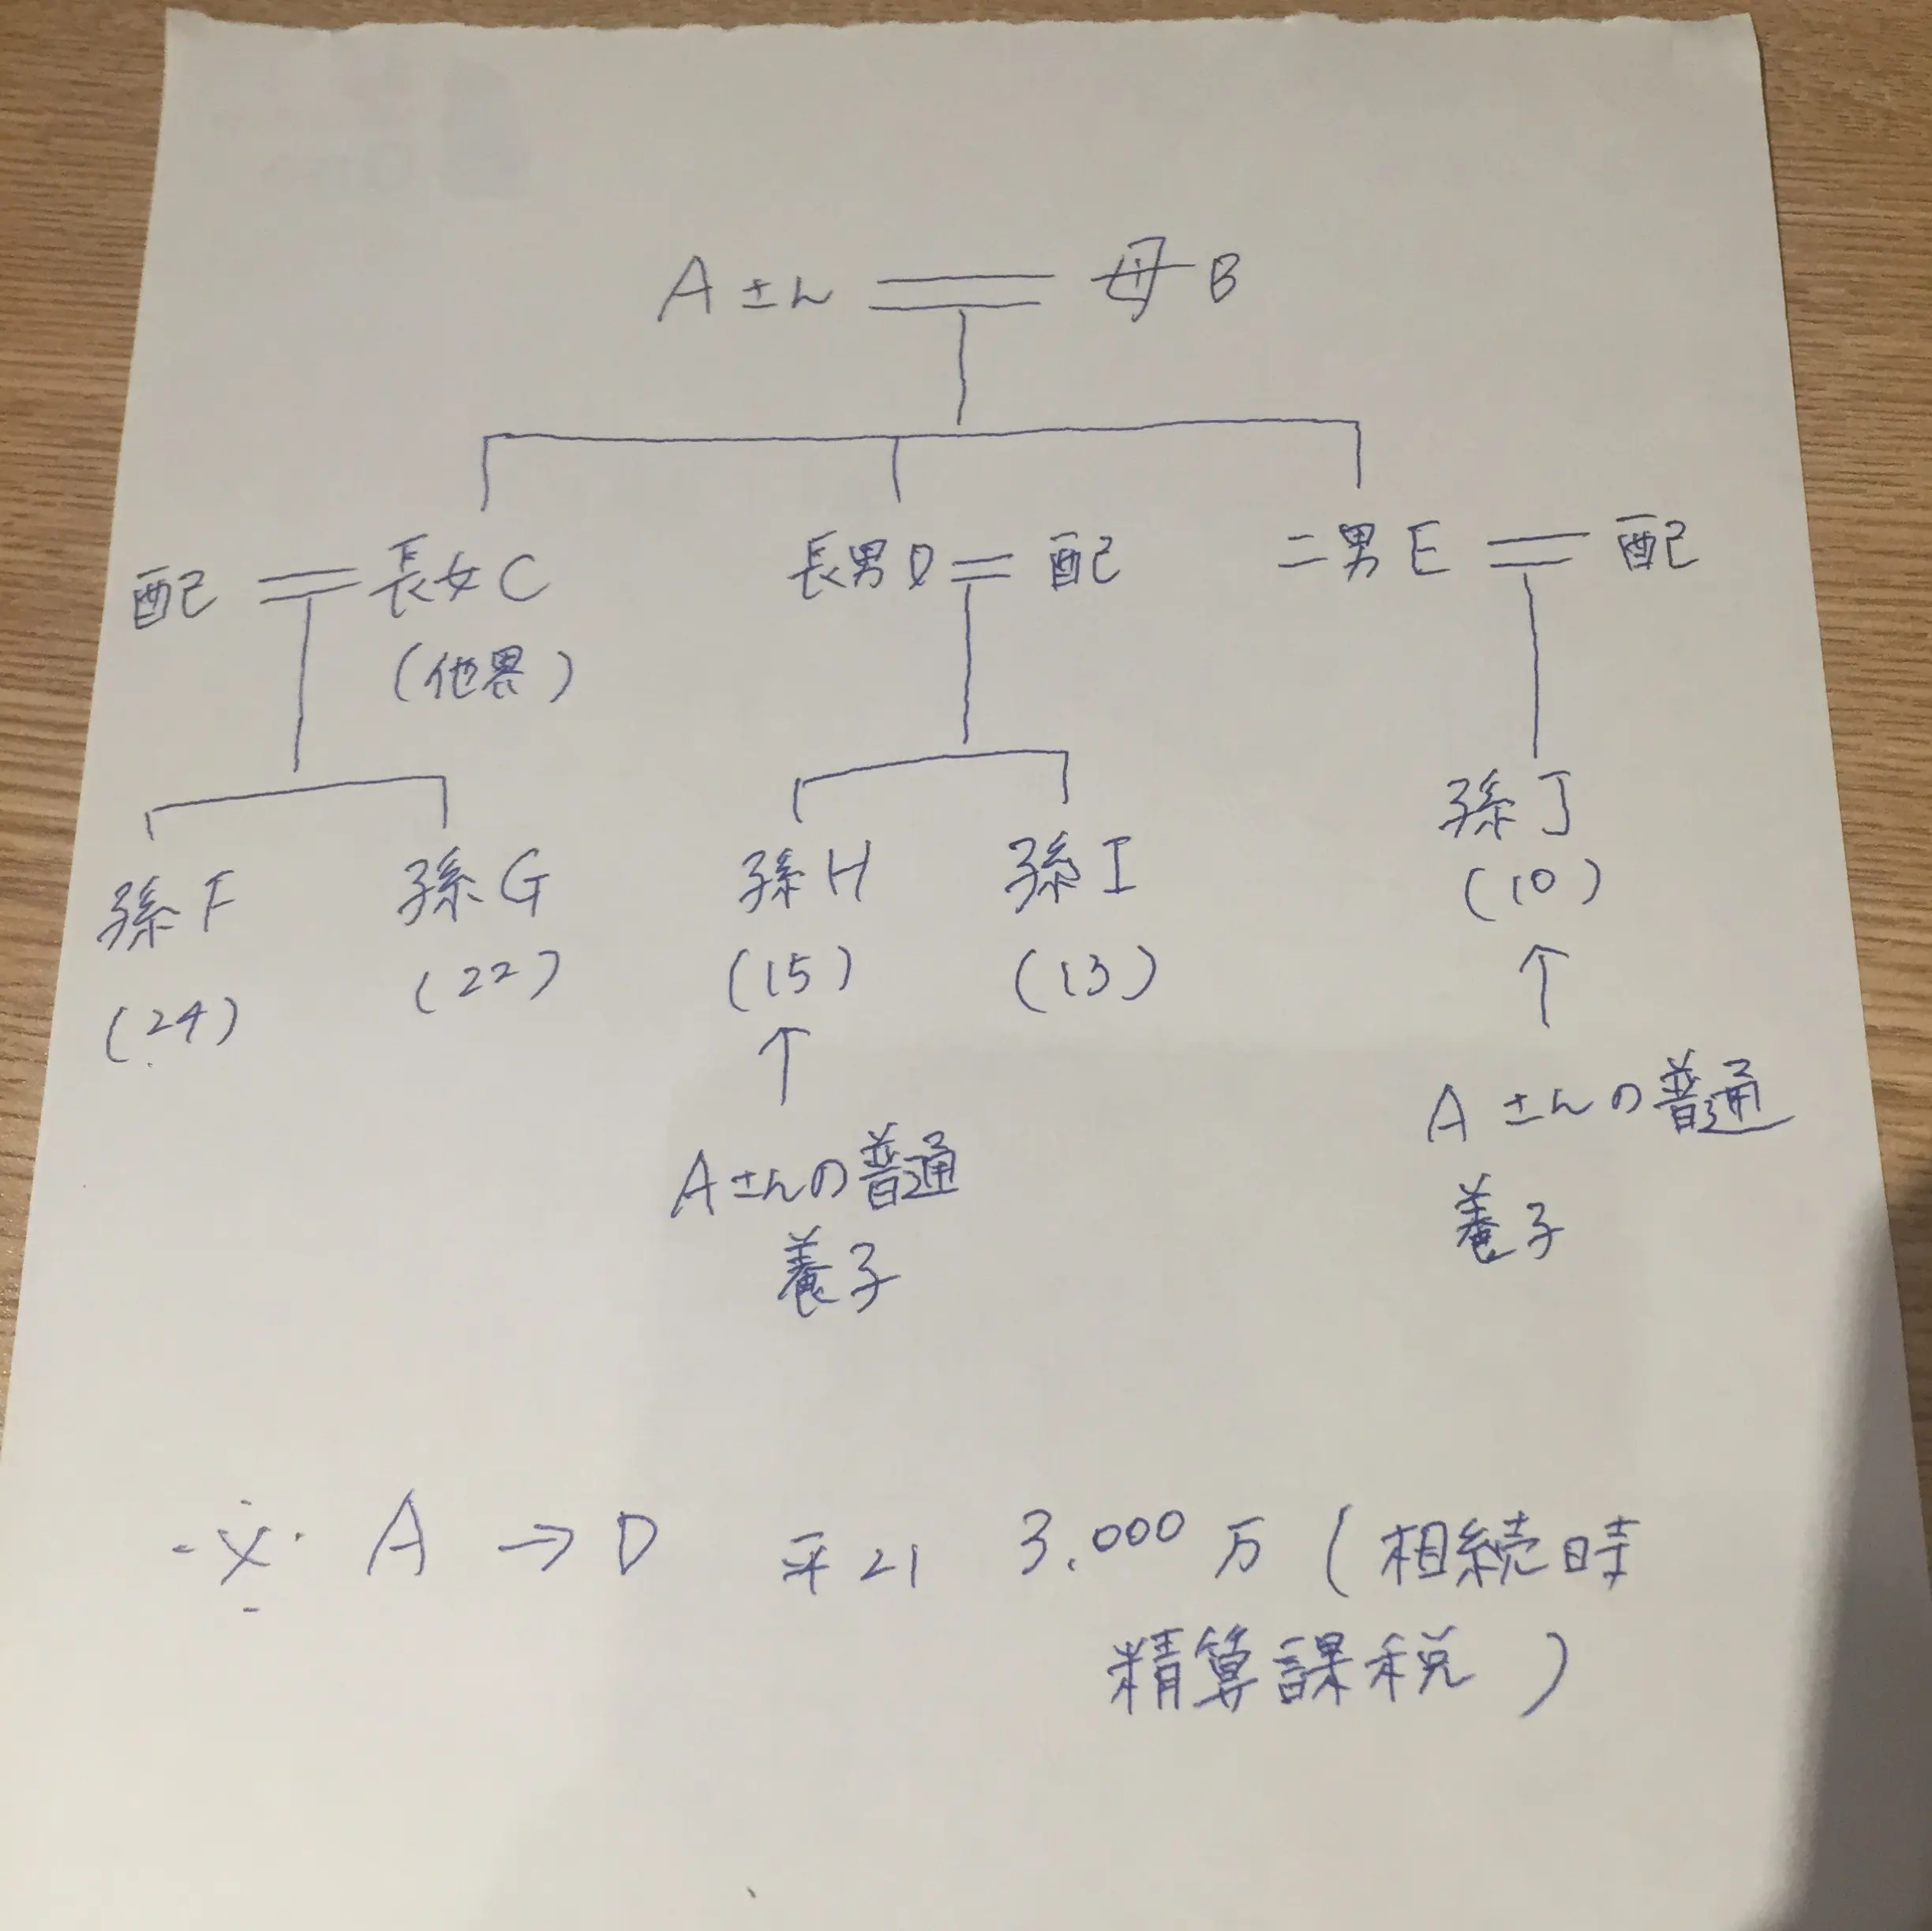 Aさん 母B
配 長女C 長男D 配 二男E 配
(他界)
孫F 孫G 孫H 孫I 孫J
(24) (22) (15) (13) (10)
↑ ↑
Aさんの普通 Aさんの普通
養子 養子
※ A → D 平21 3.000万(相続時
精算課税)